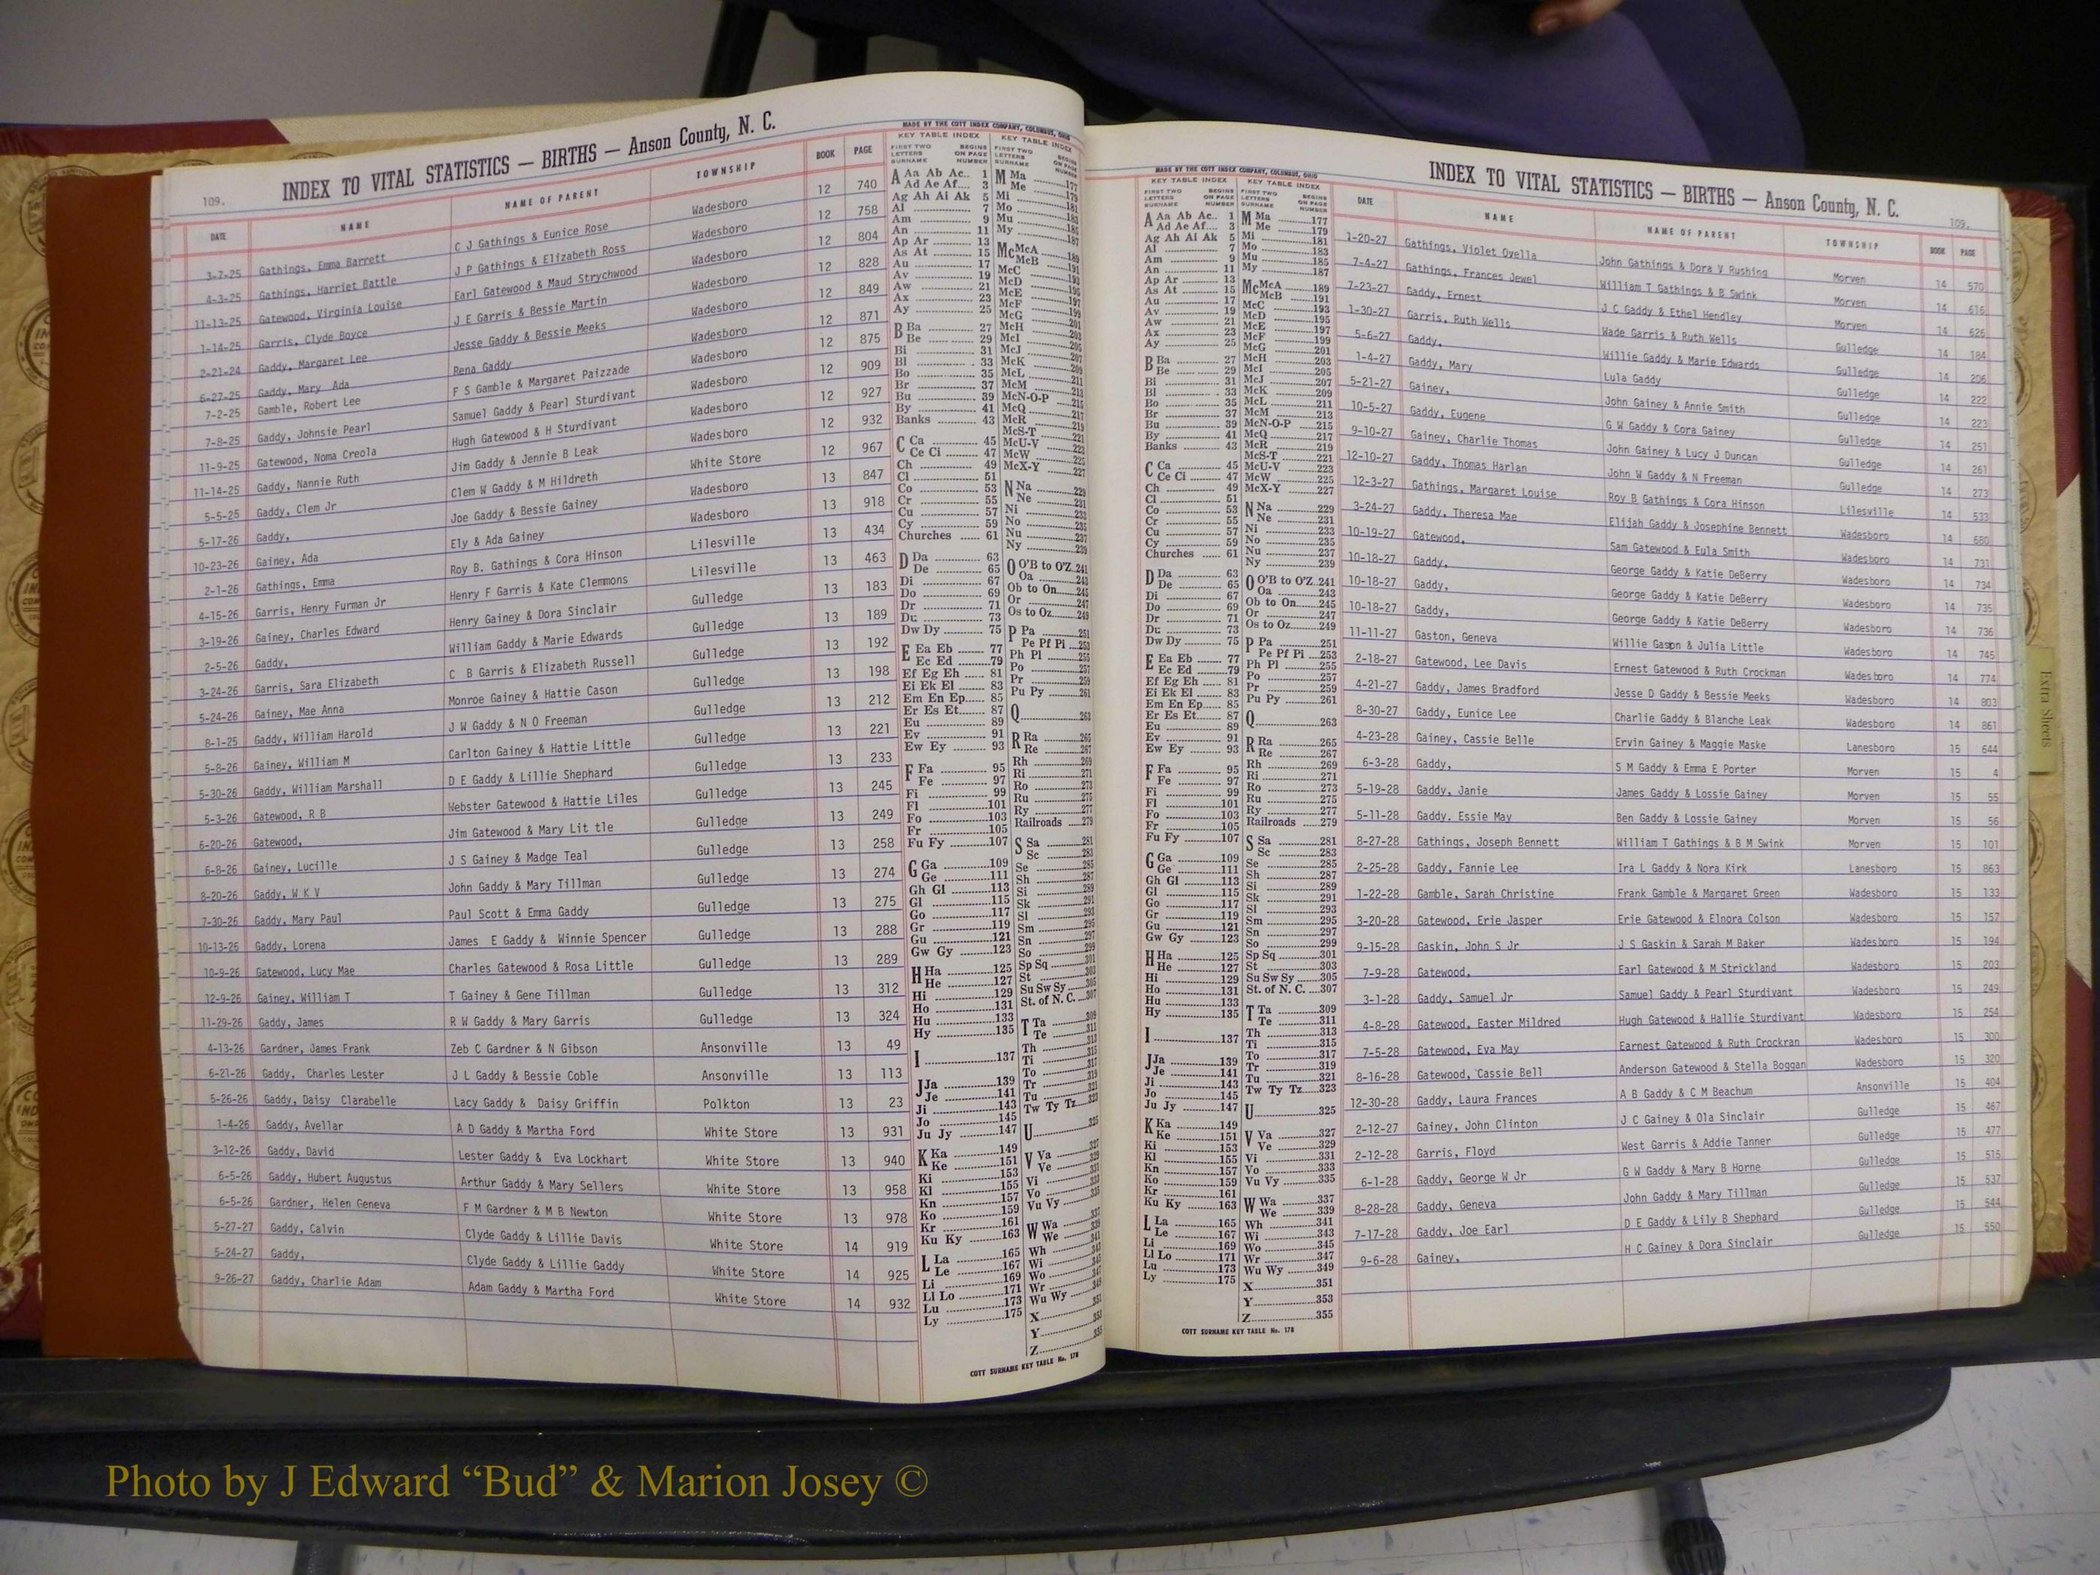 109.
INDEX TO VITAL STATISTICS — BIRTHS — Anson County, N. C.
DATE NAME NAME OF PARENT TOWNSHIP BOOK PAGE
3-7-25 Gathings, Emma Barrett C J Gathings & Eunice Rose Wadesboro 12 740
4-3-25 Gathings, Harriet Battle J P Gathings & Elizabeth Ross Wadesboro 12 758
11-13-25 Gatewood, Virginia Louise Earl Gatewood & Maud Strychwood Wadesboro 12 804
1-14-25 Garris, Clyde Boyce J E Garris & Bessie Martin Wadesboro 12 828
2-21-24 Gaddy, Margaret Lee Jesse Gaddy & Bessie Meeks Wadesboro 12 849
6-27-25 Gaddy, Mary Ada Rena Gaddy Wadesboro 12 871
7-2-25 Gamble, Robert Lee F S Gamble & Margaret Paizzade Wadesboro 12 875
7-8-25 Gaddy, Johnsie Pearl Samuel Gaddy & Pearl Sturdivant Wadesboro 12 909
11-9-25 Gatewood, Noma Creola Hugh Gatewood & H Sturdivant Wadesboro 12 927
11-14-25 Gaddy, Nannie Ruth Jim Gaddy & Jennie B Leak Wadesboro 12 932
5-5-25 Gaddy, Clem Jr Clem W Gaddy & M Hildreth White Store 12 967
5-17-26 Gaddy, Joe Gaddy & Bessie Gainey Wadesboro 13 847
10-23-26 Gainey, Ada Ely & Ada Gainey Wadesboro 13 918
2-1-26 Gathings, Emma Roy B. Gathings & Cora Hinson Lilesville 13 434
4-15-26 Garris, Henry Furman Jr Henry F Garris & Kate Clemmons Lilesville 13 463
3-19-26 Gainey, Charles Edward Henry Gainey & Dora Sinclair Gulledge 13 183
2-5-26 Gaddy, William Gaddy & Marie Edwards Gulledge 13 189
3-24-26 Garris, Sara Elizabeth C B Garris & Elizabeth Russell Gulledge 13 192
5-24-26 Gainey, Mae Anna Monroe Gainey & Hattie Cason Gulledge 13 198
8-1-25 Gaddy, William Harold J W Gaddy & N O Freeman Gulledge 13 212
5-8-26 Gainey, William M Carlton Gainey & Hattie Little Gulledge 13 221
5-30-26 Gaddy, William Marshall D E Gaddy & Lillie Shephard Gulledge 13 233
5-3-26 Gatewood, R B Webster Gatewood & Hattie Liles Gulledge 13 245
6-20-26 Gatewood, Jim Gatewood & Mary Lit tle Gulledge 13 249
6-8-26 Gainey, Lucille J S Gainey & Madge Teal Gulledge 13 258
8-20-26 Gaddy, W K V John Gaddy & Mary Tillman Gulledge 13 274
7-30-26 Gaddy, Mary Paul Paul Scott & Emma Gaddy Gulledge 13 275
10-13-26 Gaddy, Lorena James E Gaddy & Winnie Spencer Gulledge 13 288
10-9-26 Gatewood, Lucy Mae Charles Gatewood & Rosa Little Gulledge 13 289
12-9-26 Gainey, William T T Gainey & Gene Tillman Gulledge 13 312
11-29-26 Gaddy, James R W Gaddy & Mary Garris Gulledge 13 324
4-13-26 Gardner, James Frank Zeb C Gardner & N Gibson Ansonville 13 49
6-21-26 Gaddy, Charles Lester J L Gaddy & Bessie Coble Ansonville 13 113
5-26-26 Gaddy, Daisy Clarabelle Lacy Gaddy & Daisy Griffin Polkton 13 23
1-4-26 Gaddy, Avellar A D Gaddy & Martha Ford White Store 13 931
3-12-26 Gaddy, David Lester Gaddy & Eva Lockhart White Store 13 940
6-5-26 Gaddy, Hubert Augustus Arthur Gaddy & Mary Sellers White Store 13 958
6-5-26 Gardner, Helen Geneva F M Gardner & M B Newton White Store 13 978
5-27-27 Gaddy, Calvin Clyde Gaddy & Lillie Davis White Store 14 919
5-24-27 Gaddy, Clyde Gaddy & Lillie Gaddy White Store 14 925
9-26-27 Gaddy, Charlie Adam Adam Gaddy & Martha Ford White Store 14 932
MADE BY THE COTT INDEX COMPANY, COLUMBUS, OHIO
KEY TABLE INDEX
FIRST TWO LETTERS SURNAME BEGINS ON PAGE NUMBER
A Aa Ab Ac.. 1
Ad Ae Af.... 3
Ag Ah Ai Ak 5
Al 7
Am 9
An 11
Ap Ar 13
As At 15
Au 17
Av 19
Aw 21
Ax 23
Ay 25
B Ba 27
Be 29
Bi 31
Bl 33
Bo 35
Br 37
Bu 39
By 41
Banks 43
C Ca 45
Ce Ci 47
Ch 49
Cl 51
Co 53
Cr 55
Cu 57
Cy 59
Churches 61
D Da 63
De 65
Di 67
Do 69
Dr 71
Du 73
Dw Dy 75
E Ea Eb 77
Ec Ed 79
Ef Eg Eh 81
Ei Ek El 83
Em En Ep 85
Er Es Et 87
Eu 89
Ev 91
Ew Ey 93
F Fa 95
Fe 97
Fi 99
Fl 101
Fo 103
Fr 105
Fu Fy 107
G Ga 109
Ge 111
Gh Gi 113
Gl 115
Go 117
Gr 119
Gu 121
Gw Gy 123
H Ha 125
He 127
Hi 129
Ho 131
Hu 133
Hy 135
I 137
J Ja 139
Je 141
Ji 143
Jo 145
Ju Jy 147
K Ka 149
Ke 151
Ki 153
Kl 155
Kn 157
Ko 159
Kr 161
Ku Ky 163
L La 165
Le 167
Li 169
Ll Lo 171
Lu 173
Ly 175
KEY TABLE INDEX
FIRST TWO LETTERS SURNAME BEGINS ON PAGE NUMBER
M Ma 177
Me 179
Mi 181
Mo 183
Mu 185
My 187
Mc McA 189
McB 191
McC 193
McD 195
McE 197
McF 199
McG 201
McH 203
McI 205
McJ 207
McK 209
McL 211
McM 213
McN-O-P 215
McQ 217
McR 219
McS-T 221
McU-V 223
McW 225
McX-Y 227
N Na 229
Ne 231
Ni 233
No 235
Nu 237
Ny 239
O O'B to O'Z 241
Oa 243
Ob to On 245
Or 247
Os to Oz 249
P Pa 251
Pe Pf Pi 253
Ph Pl 255
Po 257
Pr 259
Pu Py 261
Q 263
R Ra 265
Re 267
Rh 269
Ri 271
Ro 273
Ru 275
Ry 277
Railroads 279
S Sa 281
Sc 283
Se 285
Sh 287
Si 289
Sk 291
Sl 293
Sm 295
Sn 297
So 299
Sp Sq 301
St 303
Su Sw Sy 305
St. of N. C. 307
T Ta 309
Te 311
Th 313
Ti 315
To 317
Tr 319
Tu 321
Tw Ty Tz 323
U 325
V Va 327
Ve 329
Vi 331
Vo 333
Vu Vy 335
W Wa 337
We 339
Wh 341
Wi 343
Wo 345
Wr 347
Wu Wy 349
X 351
Y 353
Z 355
COTT SURNAME KEY TABLE No. 178
MADE BY THE COTT INDEX COMPANY, COLUMBUS, OHIO
KEY TABLE INDEX
FIRST TWO LETTERS SURNAME BEGINS ON PAGE NUMBER
A Aa Ab Ac.. 1
Ad Ae Af.... 3
Ag Ah Ai Ak 5
Al 7
Am 9
An 11
Ap Ar 13
As At 15
Au 17
Av 19
Aw 21
Ax 23
Ay 25
B Ba 27
Be 29
Bi 31
Bl 33
Bo 35
Br 37
Bu 39
By 41
Banks 43
C Ca 45
Ce Ci 47
Ch 49
Cl 51
Co 53
Cr 55
Cu 57
Cy 59
Churches 61
D Da 63
De 65
Di 67
Do 69
Dr 71
Du 73
Dw Dy 75
E Ea Eb 77
Ec Ed 79
Ef Eg Eh 81
Ei Ek El 83
Em En Ep 85
Er Es Et 87
Eu 89
Ev 91
Ew Ey 93
F Fa 95
Fe 97
Fi 99
Fl 101
Fo 103
Fr 105
Fu Fy 107
G Ga 109
Ge 111
Gh Gi 113
Gl 115
Go 117
Gr 119
Gu 121
Gw Gy 123
H Ha 125
He 127
Hi 129
Ho 131
Hu 133
Hy 135
I 137
J Ja 139
Je 141
Ji 143
Jo 145
Ju Jy 147
K Ka 149
Ke 151
Ki 153
Kl 155
Kn 157
Ko 159
Kr 161
Ku Ky 163
L La 165
Le 167
Li 169
Ll Lo 171
Lu 173
Ly 175
KEY TABLE INDEX
FIRST TWO LETTERS SURNAME BEGINS ON PAGE NUMBER
M Ma 177
Me 179
Mi 181
Mo 183
Mu 185
My 187
Mc McA 189
McB 191
McC 193
McD 195
McE 197
McF 199
McG 201
McH 203
McI 205
McJ 207
McK 209
McL 211
McM 213
McN-O-P 215
McQ 217
McR 219
McS-T 221
McU-V 223
McW 225
McX-Y 227
N Na 229
Ne 231
Ni 233
No 235
Nu 237
Ny 239
O O'B to O'Z 241
Oa 243
Ob to On 245
Or 247
Os to Oz 249
P Pa 251
Pe Pf Pi 253
Ph Pl 255
Po 257
Pr 259
Pu Py 261
Q 263
R Ra 265
Re 267
Rh 269
Ri 271
Ro 273
Ru 275
Ry 277
Railroads 279
S Sa 281
Sc 283
Se 285
Sh 287
Si 289
Sk 291
Sl 293
Sm 295
Sn 297
So 299
Sp Sq 301
St 303
Su Sw Sy 305
St. of N. C. 307
T Ta 309
Te 311
Th 313
Ti 315
To 317
Tr 319
Tu 321
Tw Ty Tz 323
U 325
V Va 327
Ve 329
Vi 331
Vo 333
Vu Vy 335
W Wa 337
We 339
Wh 341
Wi 343
Wo 345
Wr 347
Wu Wy 349
X 351
Y 353
Z 355
COTT SURNAME KEY TABLE No. 178
INDEX TO VITAL STATISTICS — BIRTHS — Anson County, N. C.
109.
DATE NAME NAME OF PARENT TOWNSHIP BOOK PAGE
1-20-27 Gathings, Violet Ovella John Gathings & Dora V Rushing Morven 14 570
7-4-27 Gathings, Frances Jewel William T Gathings & B Swink Morven 14 616
7-23-27 Gaddy, Ernest J C Gaddy & Ethel Hendley Morven 14 626
1-30-27 Garris, Ruth Wells Wade Garris & Ruth Wells Gulledge 14 184
5-6-27 Gaddy, Willie Gaddy & Marie Edwards Gulledge 14 206
1-4-27 Gaddy, Mary Lula Gaddy Gulledge 14 222
5-21-27 Gainey, John Gainey & Annie Smith Gulledge 14 223
10-5-27 Gaddy, Eugene G W Gaddy & Cora Gainey Gulledge 14 251
9-10-27 Gainey, Charlie Thomas John Gainey & Lucy J Duncan Gulledge 14 261
12-10-27 Gaddy, Thomas Harlan John W Gaddy & N Freeman Gulledge 14 273
12-3-27 Gathings, Margaret Louise Roy B Gathings & Cora Hinson Lilesville 14 533
3-24-27 Gaddy, Theresa Mae Elijah Gaddy & Josephine Bennett Wadesboro 14 680
10-19-27 Gatewood, Sam Gatewood & Eula Smith Wadesboro 14 731
10-18-27 Gaddy, George Gaddy & Katie DeBerry Wadesboro 14 734
10-18-27 Gaddy, George Gaddy & Katie DeBerry Wadesboro 14 735
10-18-27 Gaddy, George Gaddy & Katie DeBerry Wadesboro 14 736
11-11-27 Gaston, Geneva Willie Gaspon & Julia Little Wadesboro 14 745
2-18-27 Gatewood, Lee Davis Ernest Gatewood & Ruth Crockman Wadesboro 14 774
4-21-27 Gaddy, James Bradford Jesse D Gaddy & Bessie Meeks Wadesboro 14 803
8-30-27 Gaddy, Eunice Lee Charlie Gaddy & Blanche Leak Wadesboro 14 861
4-23-28 Gainey, Cassie Belle Ervin Gainey & Maggie Maske Lanesboro 15 644
6-3-28 Gaddy, S M Gaddy & Emma E Porter Morven 15 4
5-19-28 Gaddy, Janie James Gaddy & Lossie Gainey Morven 15 55
5-11-28 Gaddy. Essie May Ben Gaddy & Lossie Gainey Morven 15 56
8-27-28 Gathings, Joseph Bennett William T Gathings & B M Swink Morven 15 101
2-25-28 Gaddy, Fannie Lee Ira L Gaddy & Nora Kirk Lanesboro 15 863
1-22-28 Gamble, Sarah Christine Frank Gamble & Margaret Green Wadesboro 15 133
3-20-28 Gatewood, Erie Jasper Erie Gatewood & Elnora Colson Wadesboro 15 157
9-15-28 Gaskin, John S Jr J S Gaskin & Sarah M Baker Wadesboro 15 194
7-9-28 Gatewood, Earl Gatewood & M Strickland Wadesboro 15 203
3-1-28 Gaddy, Samuel Jr Samuel Gaddy & Pearl Sturdivant Wadesboro 15 249
4-8-28 Gatewood, Easter Mildred Hugh Gatewood & Hallie Sturdivant Wadesboro 15 254
7-5-28 Gatewood, Eva May Earnest Gatewood & Ruth Crockran Wadesboro 15 300
8-16-28 Gatewood, Cassie Bell Anderson Gatewood & Stella Boggan Wadesboro 15 320
12-30-28 Gaddy, Laura Frances A B Gaddy & C M Beachum Ansonville 15 404
2-12-27 Gainey, John Clinton J C Gainey & Ola Sinclair Gulledge 15 467
2-12-28 Garris, Floyd West Garris & Addie Tanner Gulledge 15 477
6-1-28 Gaddy, George W Jr G W Gaddy & Mary B Horne Gulledge 15 515
8-28-28 Gaddy, Geneva John Gaddy & Mary Tillman Gulledge 15 537
7-17-28 Gaddy, Joe Earl D E Gaddy & Lily B Shephard Gulledge 15 544
9-6-28 Gainey, H C Gainey & Dora Sinclair Gulledge 15 550
Extra Sheets
Photo by J Edward “Bud” & Marion Josey ©